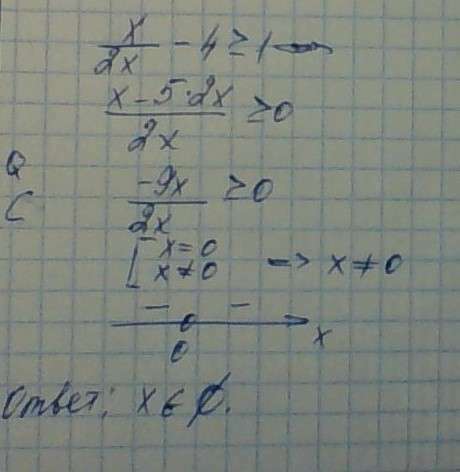 x/2x - 4 ≥ 1
x - 5·2x / 2x ≥ 0
Q
C
-9x / 2x ≥ 0
[ x = 0
x ≠ 0 => x ≠ 0
- -
0
x
Ответ: x ∈ ∅.